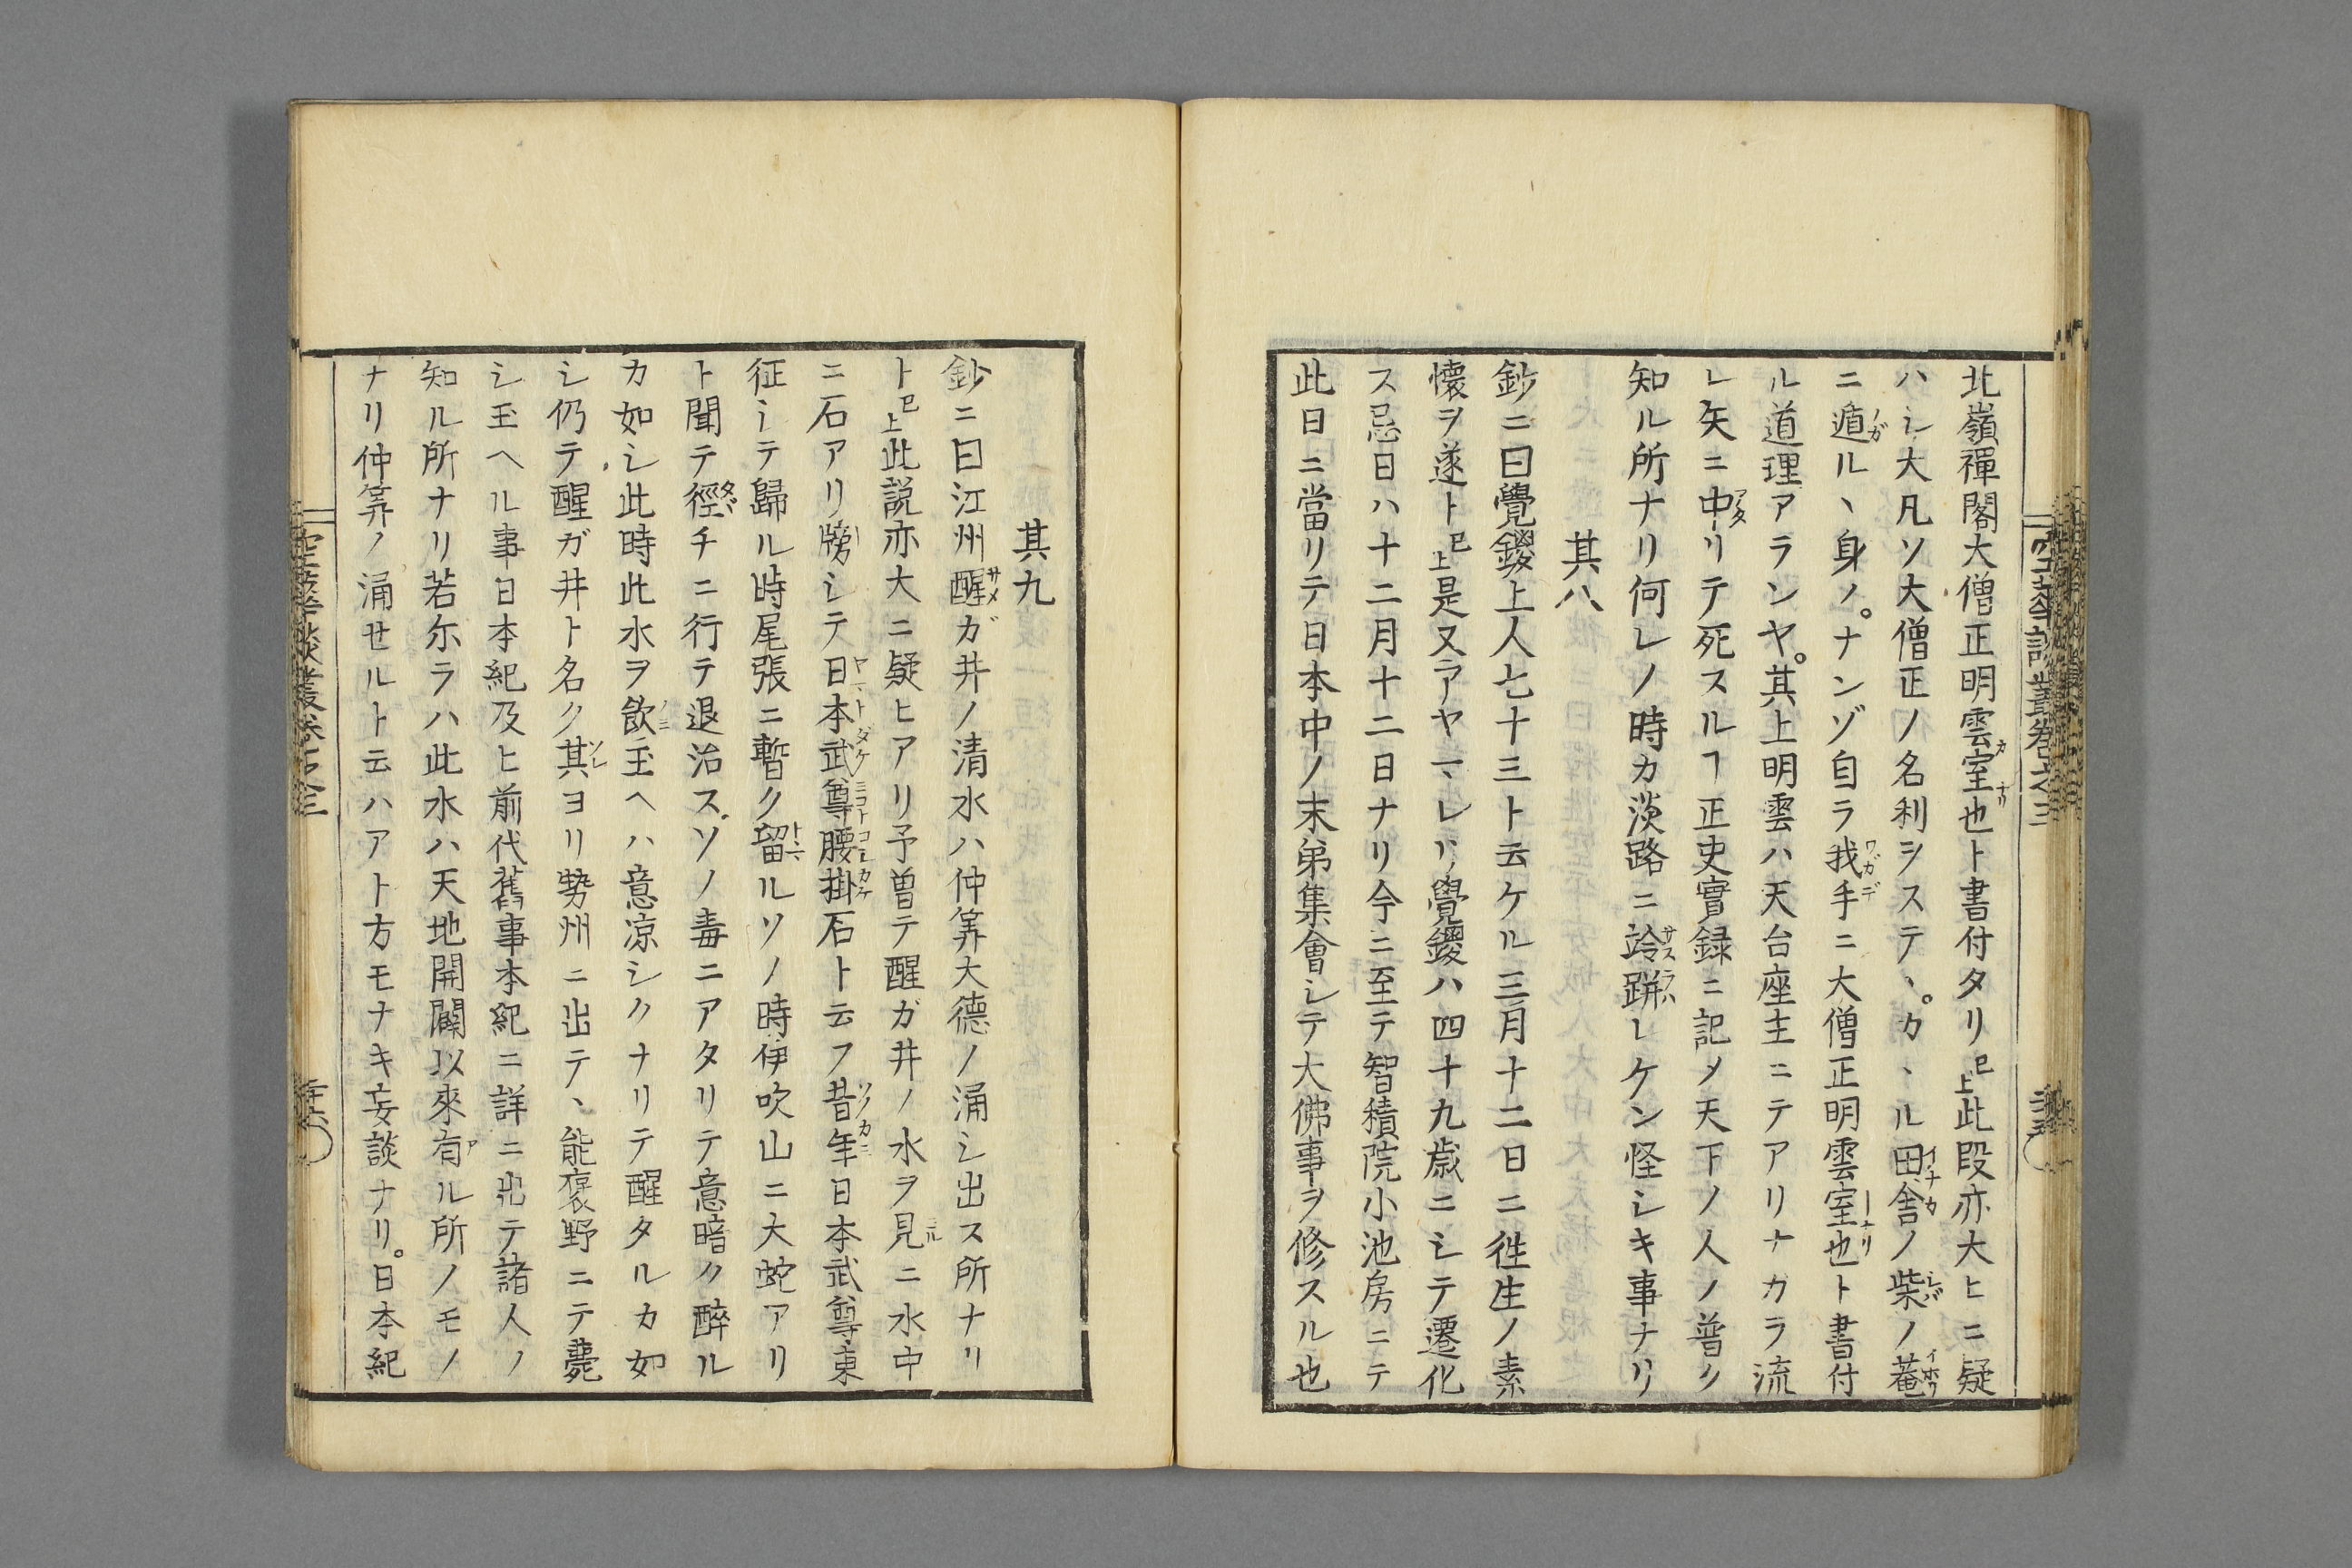 空華談叢巻之三
北嶺禪閣大僧正明雲室也ト書付タリ已上此段亦大ヒニ疑
ハシ大凡ソ大僧正ノ名利ヲステヽ。カヽル田舎ノ柴ノ菴
ニ遁ルヽ身ノ。ナンゾ自ラ我手ニ大僧正明雲室也ト書付
ル道理アランヤ。其上明雲ハ天台座主ニテアリナカラ流
レ矢ニ中リテ死スルヿ正史實録ニ記メ天下ノ人ノ普ク
知ル所ナリ何レノ時カ淡路ニ跉跰レケン怪シキ事ナリ
其八
鈔ニ曰覺鑁上人七十三ト云ケル三月十二日ニ徃生ノ素
懷ヲ遂ト已上是又アヤマレリ覺鑁ハ四十九歳ニシテ遷化
ス忌日ハ十二月十二日ナリ今ニ至テ智積院小池房ニテ
此日ニ當リテ日本中ノ末弟集會シテ大佛事ヲ修スル也
其九
鈔ニ曰江州醒ガ井ノ清水ハ仲筭大德ノ涌シ出ス所ナリ
ト已上此説亦大ニ疑ヒアリ予曽テ醒ガ井ノ水ヲ見ニ水中
ニ石アリ牓シテ日本武尊腰掛石ト云フ昔年日本武尊東
征シテ歸ル時尾張ニ暫ク留ルソノ時伊吹山ニ大蛇アリ
ト聞テ徑チニ行テ退治ス。ソノ毒ニアタリテ意暗ク醉ル
カ如シ此時此水ヲ飲玉ヘハ意凉シクナリテ醒タルカ如
シ仍テ醒ガ井ト名ク其ヨリ勢州ニ出テヽ能褒野ニテ薨
シ玉ヘル事日本紀及ヒ前代舊事本紀ニ詳ニ出テ諸人ノ
知ル所ナリ若尓ラハ此水ハ天地開闢以來有ル所ノモノ
ナリ仲筭ノ涌セルト云ハアト方モナキ妄談ナリ。日本紀
空華談叢巻之三